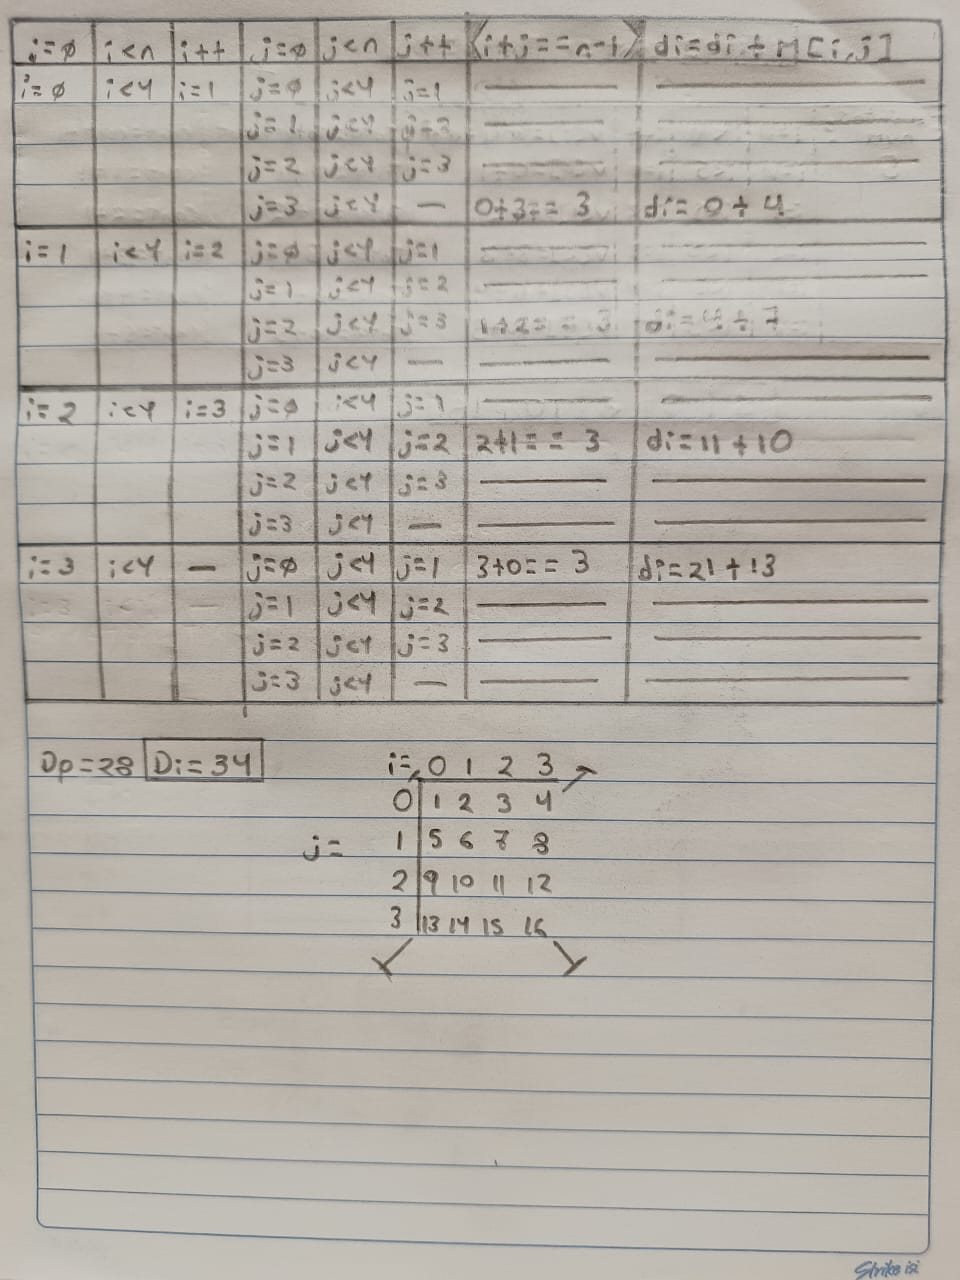 i=ø i<n i++ j=ø j<n j++ <i+j==n-1> di=di+M[i,j]
i=ø i<4 i=1 j=ø j<4 j=1 — —
j=1 j<4 j=2 — —
j=2 j<4 j=3 — —
j=3 j<4 — 0+3== 3 di= 0+4
i=1 i<4 i=2 j=ø j<4 j=1 — —
j=1 j<4 j=2 — —
j=2 j<4 j=3 1+2== 3 di=4+7
j=3 j<4 — — —
i=2 i<4 i=3 j=ø j<4 j=1 — —
j=1 j<4 j=2 2+1== 3 di=11+10
j=2 j<4 j=3 — —
j=3 j<4 — — —
i=3 i<4 — j=ø j<4 j=1 3+0== 3 di=21+13
j=1 j<4 j=2 — —
j=2 j<4 j=3 — —
j=3 j<4 — — —
Dp=28 Di=34
i= 0 1 2 3
0 1 2 3 4
j= 1 5 6 7 8
2 9 10 11 12
3 13 14 15 16